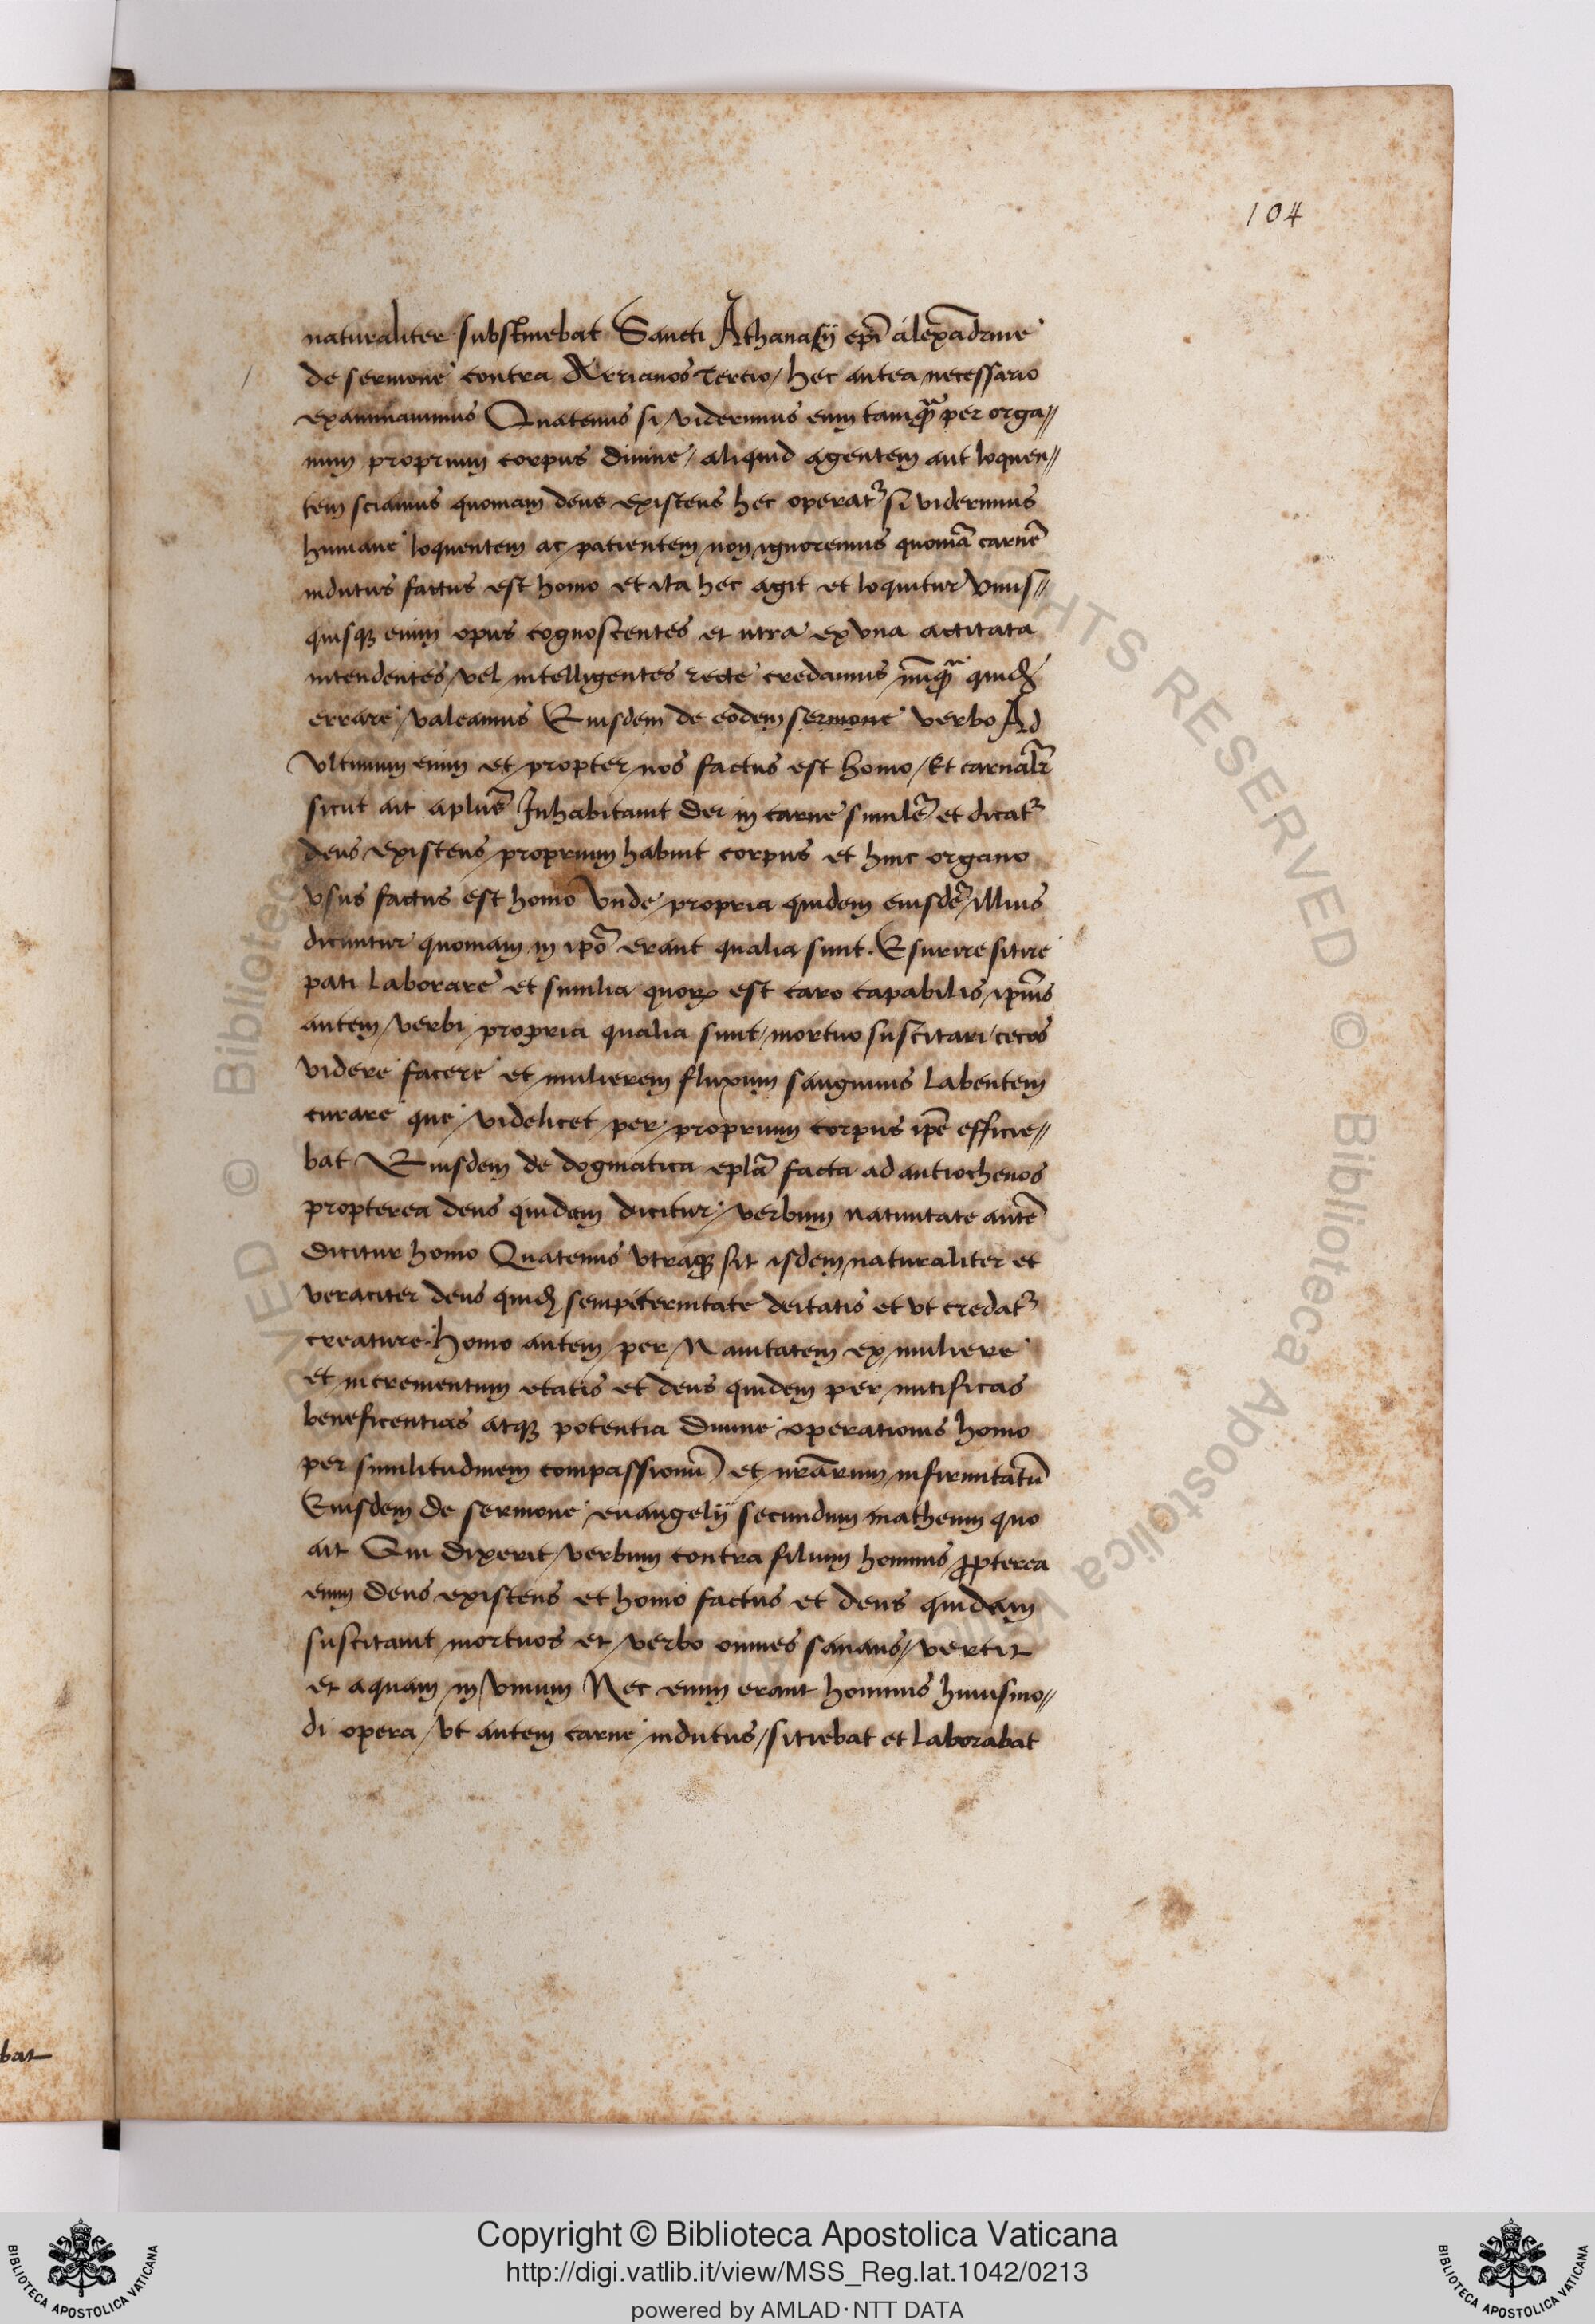 104
naturaliter substinebat Sancti Athanasij epī alexādrine
de sermone contra Arrianos tertio / hec antea necessario
examinauimus Quatenus si viderimus eum tamq̄ per orga//
num proprium corpus diuine / aliquid agentem aut loquen//
tem sciamus quoniam deus existens hec operat᷑ si viderimus
humane loquentem ac patientem non ignoremus quoniā carnē
indutus factus est homo et ita hec agit et loquitur Vnus//
quisqꝫ enim opus cognoscentes et utra ex vna actitata
intendentes / vel intelligentes recte credamus nūq̄ quid̄
errare valeamus Eiusdem de eodem sermone verbo Ad
Vltimum enim et propter nos factus est homo / Et carnalr̄
sicut ait aplus̄ Inhabitauit dei in carne similr̄ et dicat᷑
deus existens proprium habuit corpus et huic organo
vsus factus est homo Vnde propria quidem eiusdē illius
dicuntur quoniam in ipō erant qualia sunt. Esurire sitire
pati laborare et similia quoꝝ est caro capabilis ipīus
autem verbi propria qualia sunt / mortuo suscitari / cecos
videre facere et mulierem fluxum sanguinis labentem
curare que videlicet per proprium corpus ipē efficie//
bat Eiusdem de dogmatica eplā facta ad antiochenos
propterea deus quidem dicitur verbum natiuitate autē
dicitur homo Quatenus vtraqꝫ sit isdem naturaliter et
veraciter deus quid̄ sempiternitate deitatis et vt credat᷑
creature. homo autem per Nauitatem ex muliere
et incrementum etatis et deus quidem per mitificas
beneficentias atqꝫ potentia diuine operationis homo
per similitudinem compassionū et nr̄arum infirmitatū
Eiusdem de sermone euangelij secundum matheum quo
ait Qui dixerit verbum contra filium hominis ꝓpterea
enim deus existens et homo factus et deus quidem
suscitauit mortuos et verbo omnes sanans / vertit
et aquam in vinum Nec enim erant hominis huiusmo//
di opera / vt autem carne indutus / sitiebat et laborabat
bat
Copyright © Biblioteca Apostolica Vaticana
http://digi.vatlib.it/view/MSS_Reg.lat.1042/0213
powered by AMLAD·NTT DATA
BIBLIOTECA APOSTOLICA VATICANA
BIBLIOTECA APOSTOLICA VATICANA